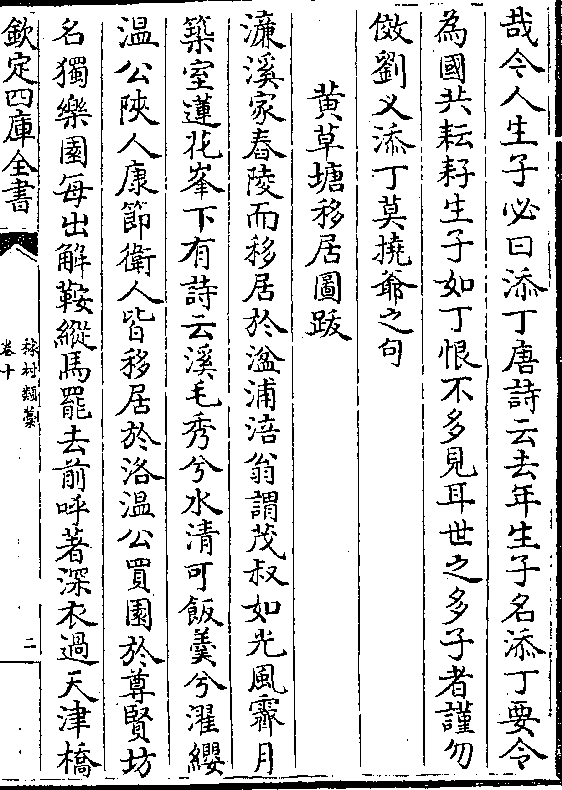 哉令人生子必曰添丁唐詩云去年生子名添丁要令
為國共耘耔生子如丁恨不多見耳世之多子者謹勿
傚劉乂添丁莫撓爺之句
黄草塘移居圖跋
濂溪家舂陵而移居於湓浦涪翁謂茂叔如光風霽月
築室蓮花峯下有詩云溪毛秀兮水清可飯羹兮濯纓
温公陜人康節衛人皆移居於洛温公買園於尊賢坊
名獨樂園每出解鞍縱馬罷去前呼著深衣過天津橋
欽定四庫全書
稼村類藁
卷十
二